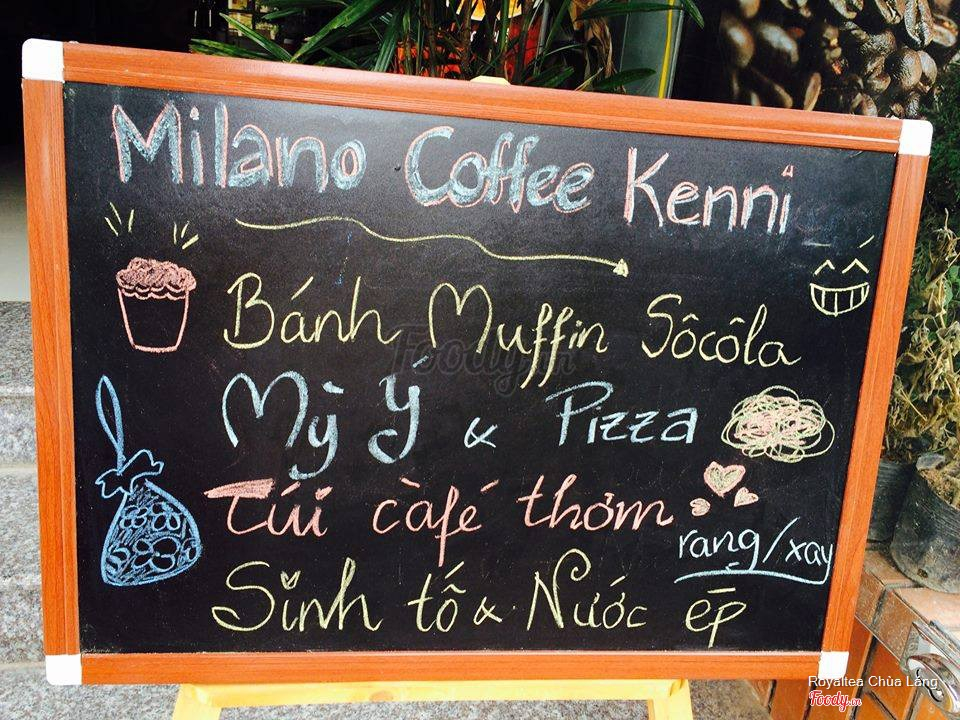 Milano Coffee Kenni
Bánh Muffin Sôcôla
Mỳ Ý & Pizza
Túi càfé thơm
rang/xay
Sinh tố & Nước ép
Foody.vn
Royaltea Chùa Láng
Foody.vn